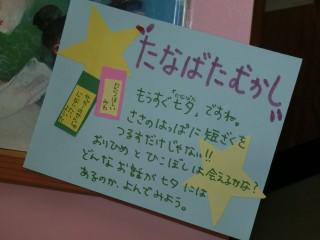 たなばたむかし
もうすぐ七夕。ですね。
ささのはっぱに短ざくを
つるすだけじゃない!!
おりひめとひこぼしは会えるかな?
どんなお話が七夕には
あるのか、よんでみよう。